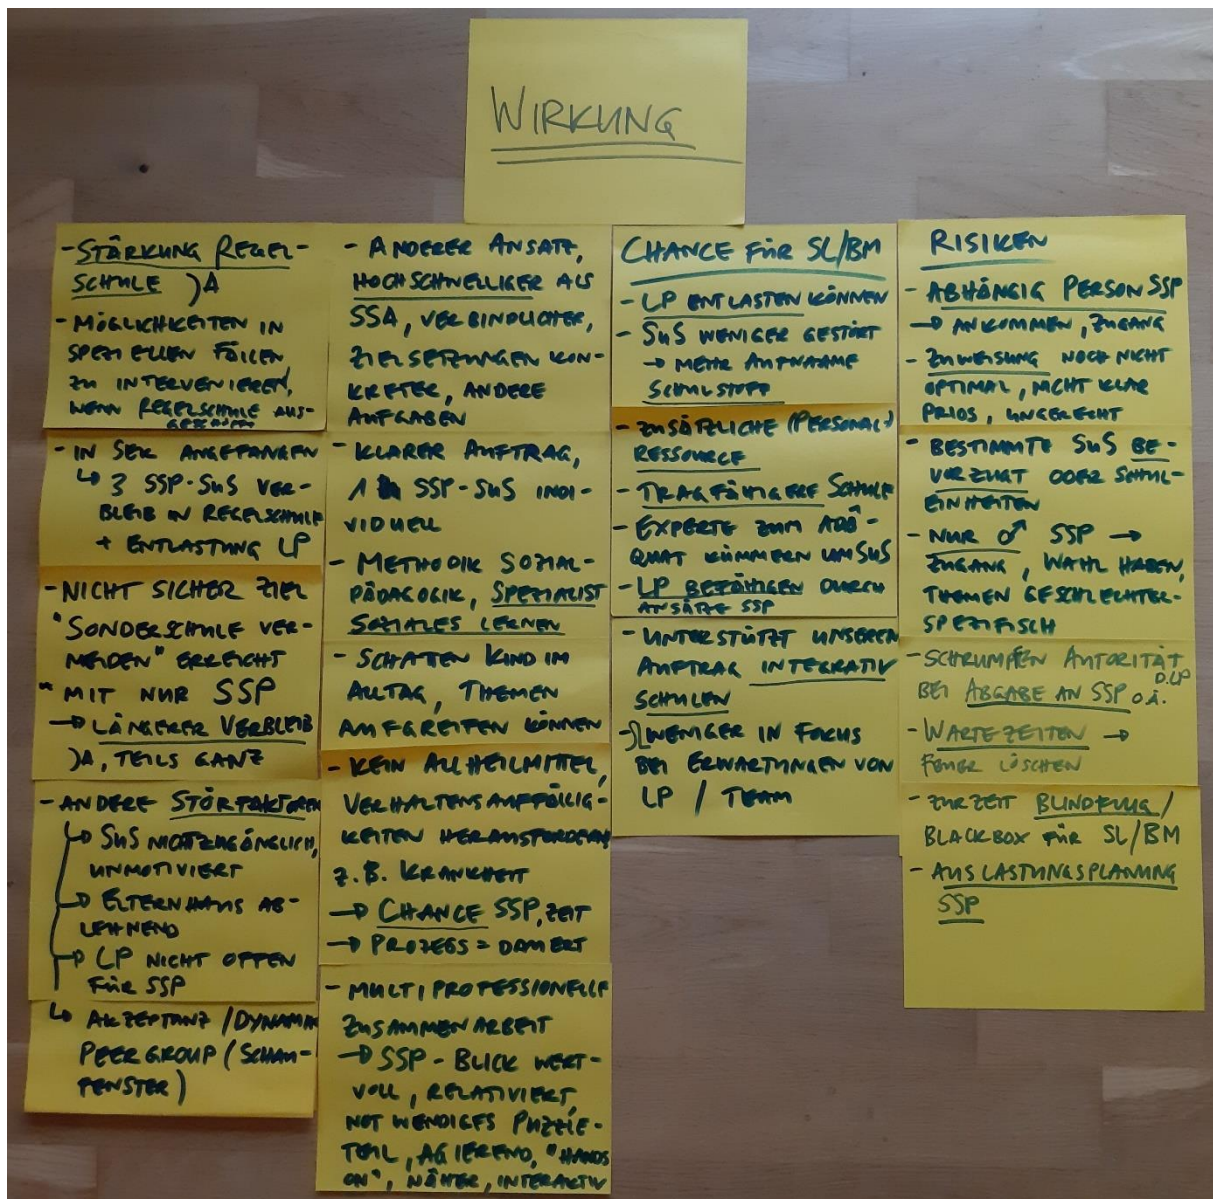 WIRKUNG
- STÄRKUNG REGEL-
SCHULE )A
- MÖGLICHKEITEN IN
SPEZIELLEN FÄLLEN
ZU INTERVENIEREN,
WENN REGELSCHULE AUS-
GESCHÖPFT
- IN SEK ANGEFANGEN
↳ 3 SSP-SuS VER-
BLEIB IN REGELSCHULE
+ ENTLASTUNG LP
- NICHT SICHER ZIEL
"SONDERSCHULE VER-
MEIDEN" ERREICHT
" MIT NUR SSP
→ LÄNGERER VERBLEIB
)A, TEILS GANZ
- ANDERE STÖRFAKTOREN
↳ SuS NICHT ZUGÄNGLICH,
UNMOTIVIERT
→ ELTERNHAUS AB-
LEHNEND
→ LP NICHT OFFEN
FÜR SSP
↳ AKZEPTANZ / DYNAMIK
PEERGROUP (SCHAU-
FENSTER)
- ANDERER ANSATZ,
HOCHSCHWELLIGER ALS
SSA, VERBINDLICHER,
ZIELSETZUNGEN KON-
KRETER, ANDERE
AUFGABEN
- KLARER AUFTRAG,
1 SSP-SuS INDI-
VIDUELL
- METHODIK SOZIAL-
PÄDAGOGIK, SPEZIALIST
SOZIALES LERNEN
- SCHATTEN KIND IM
ALLTAG, THEMEN
AUFGREIFEN KÖNNEN
- KEIN ALLHEILMITTEL,
VERHALTENSAUFFÄLLIG-
KEITEN HERAUSFORDERND
z.B. KRANKHEIT
→ CHANCE SSP, ZEIT
→ PROZESS = DAUERT
- MULTIPROFESSIONELLE
ZUSAMMENARBEIT
→ SSP-BLICK WERT-
VOLL, RELATIVIERT,
NOTWENDIGES PUZZLE-
TEIL, AGIEREND, "HANDS
ON", NÄHER, INTERAKTIV
CHANCE FÜR SL/BM
- LP ENTLASTEN KÖNNEN
- SuS WENIGER GESTÖRT
→ MEHR AUFNAHME
SCHULSTOFF
- ZUSÄTZLICHE (PERSONAL)
RESSOURCE
- TRAGFÄHIGERE SCHULE
- EXPERTE ZUM ADÄ-
QUAT KÜMMERN UM SuS
- LP BEFÄHIGEN DURCH
ANSÄTZE SSP
- UNTERSTÜTZT UNSEREN
AUFTRAG INTEGRATIV
SCHULEN
- SL WENIGER IN FOKUS
BEI ERWARTUNGEN VON
LP / TEAM
RISIKEN
- ABHÄNGIG PERSON SSP
→ ANKOMMEN, ZUGANG
- ZUWEISUNG NOCH NICHT
OPTIMAL, NICHT KLAR
PRIOS, UNGERECHT
- BESTIMMTE SuS BE-
VORZUGT ODER SCHUL-
EINHEITEN
- NUR ♂ SSP →
ZUGANG, WAHL HABEN,
THEMEN GESCHLECHTER-
SPEZIFISCH
- SCHRUMPFEN AUTORITÄT
D. LP
BEI ABGABE AN SSP o.ä.
- WARTEZEITEN →
FEUER LÖSCHEN
- ZURZEIT BLINDFLUG /
BLACKBOX FÜR SL/BM
- AUSLASTUNGSPLANUNG
SSP